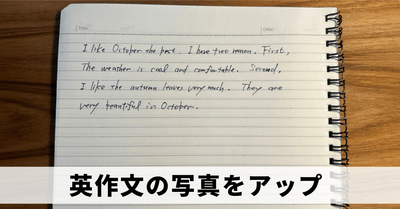 Title
Date
I like October the best. I have two reason. First,
The weather is cool and comfortable. Second,
I like the autumn leaves very much. They are
very beautiful in October.
英作文の写真をアップ